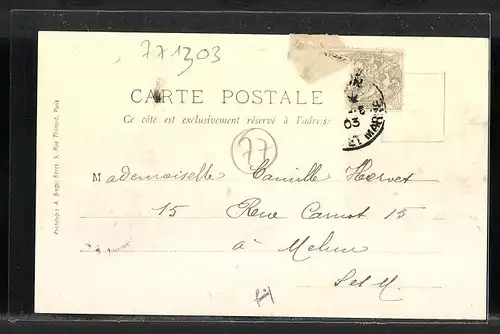 771303
CARTE POSTALE
Ce côté est exclusivement réservé à l'adresse
03
ET MARNE
77
Mademoiselle Camille Hervet
15 Rue Carnot 15
à Melun
S et M.
Phototypie A. Bergeret, Frères, 9, Rue Thénard, Paris